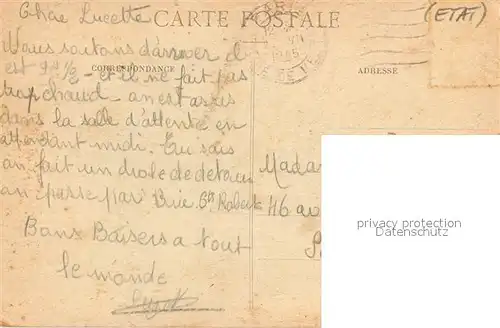 Chère Lucette
CARTE POSTALE
(ETAT)
CORRESPONDANCE
ADRESSE
Nous sortons d'arriver il
est 9h 1/2 - et il ne fait pas
trop chaud - on est assis
dans la salle d'attente en
attendant midi. Tu sais
on fait un drole de detour
on passe par Brie Cte Robert
Bons Baisers a tout
le monde
Madam
46 av
privacy protection
Datenschutz